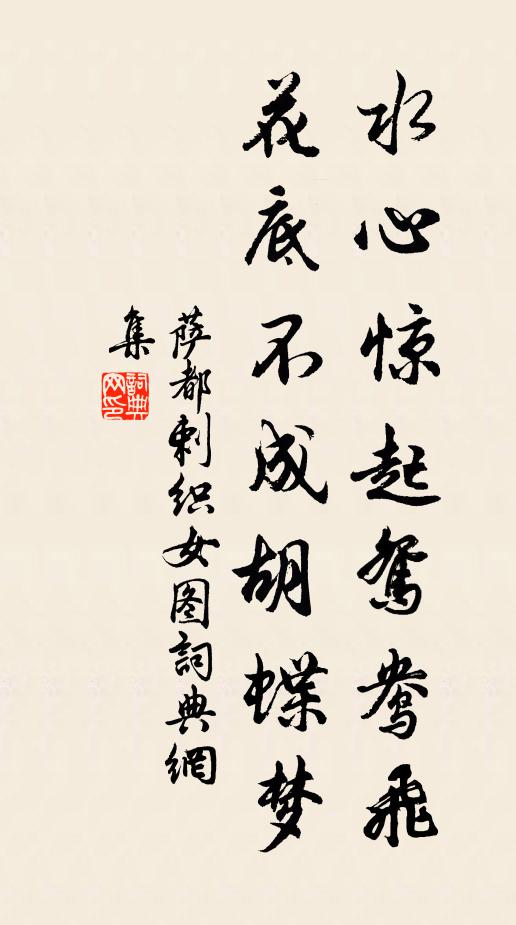 水心惊起鸳鸯飞
花底不成胡蝶梦
萨都剌织女图詞典網
集
詞典
网印